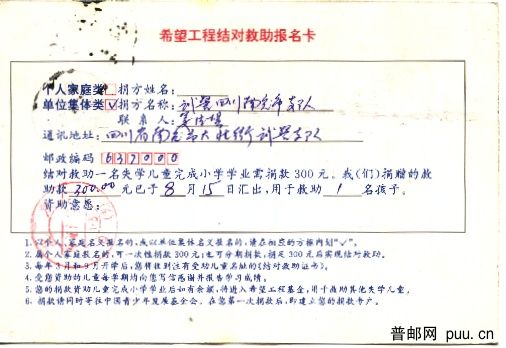 希望工程结对救助报名卡
个人家庭类 捐方姓名:
单位集体类 ✓ 捐方名称: 武警四川南充市支队
联系人:
通讯地址: 四川省南充市大北街武警支队
邮政编码 637000
结对救助一名失学儿童完成小学学业需捐款300元。我(们)捐赠的救
助款 300.00 元已于 8 月 15 日汇出,用于救助 1 名孩子。
资助意愿:
1. 以个人、家庭名义报名的,或以单位集体名义报名的,请在相应的方框内划"✓"。
2. 属个人家庭报名的,可一次性捐款300元;也可分期捐款,捐足300元后实现结对救助。
3. 每年3月和9月开学后,您将收到注有受助儿童名址的《结对救助证书》。
4. 受您资助的儿童每学期均向您写信感谢并报告学习成绩。
5. 您的捐款资助儿童完成小学学业后如有余额,将进入希望工程基金,用于救助其他失学儿童。
6. 捐款请同时寄往中国青少年发展基金会。在您第一次捐款后,即建立您的捐款专户。
普邮网 puu.cn